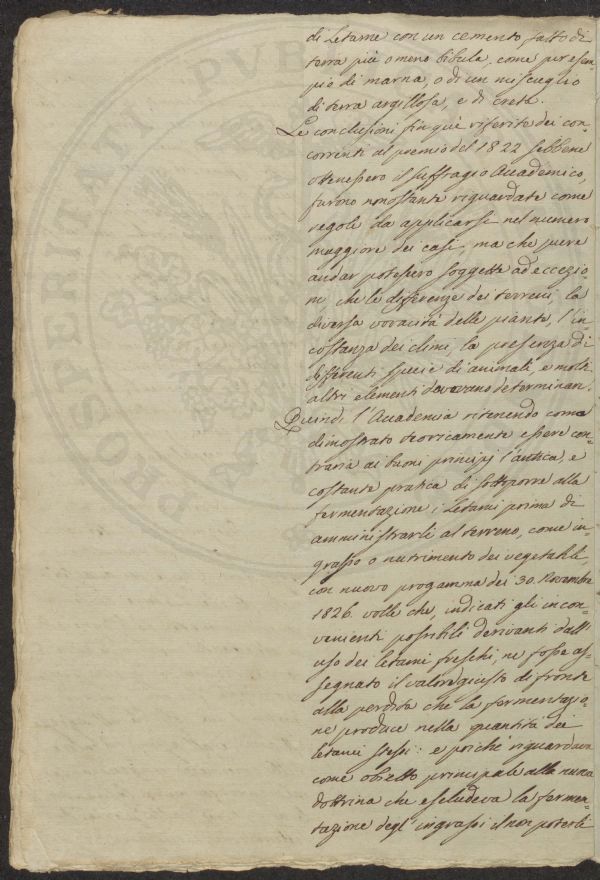 di Letame con un cemento fatto di
terra più o meno bibula, come per esem-
pio di marna, o di un miscuglio
di terra argillosa, e di creta.
Le conclusioni fin quì riferite dei con-
correnti al premio del 1822 sebbene
ottenessero il suffragio Accademico,
furono nonostante riguardate come
regole da applicarsi nel numero
maggiore dei casi, ma che pure
andar potessero soggette ad eccezio
ni che le differenze dei terreni, la
diversa voracità delle piante, l'in-
costanza dei climi, la presenza di
differenti specie di animali, e molti
altri elementi dovevano determinare.
Quindi l'Accademia ritenendo come
dimostrato teoricamente essere con-
traria ai buoni principj l'antica, e
costante pratica di sottoporre alla
fermentazione i Letami prima di
amministrarli al terreno, come in-
grasso o nutrimento dei vegetabili,
con nuovo progamma dei 30. Novembre
1826. volle che, indicati gli incon-
venienti possibili derivanti dall'
uso dei letami freschi, ne fosse as-
segnato il valore giusto di fronte
alla perdita che la fermentazio-
ne produce nella quantità dei
letami stessi: e poichè riguardava
come obietto principale alla nuova
dottrina che escludeva la fermen-
tazione degl'ingrassi il non poterli
PROSPERITATI PVBL